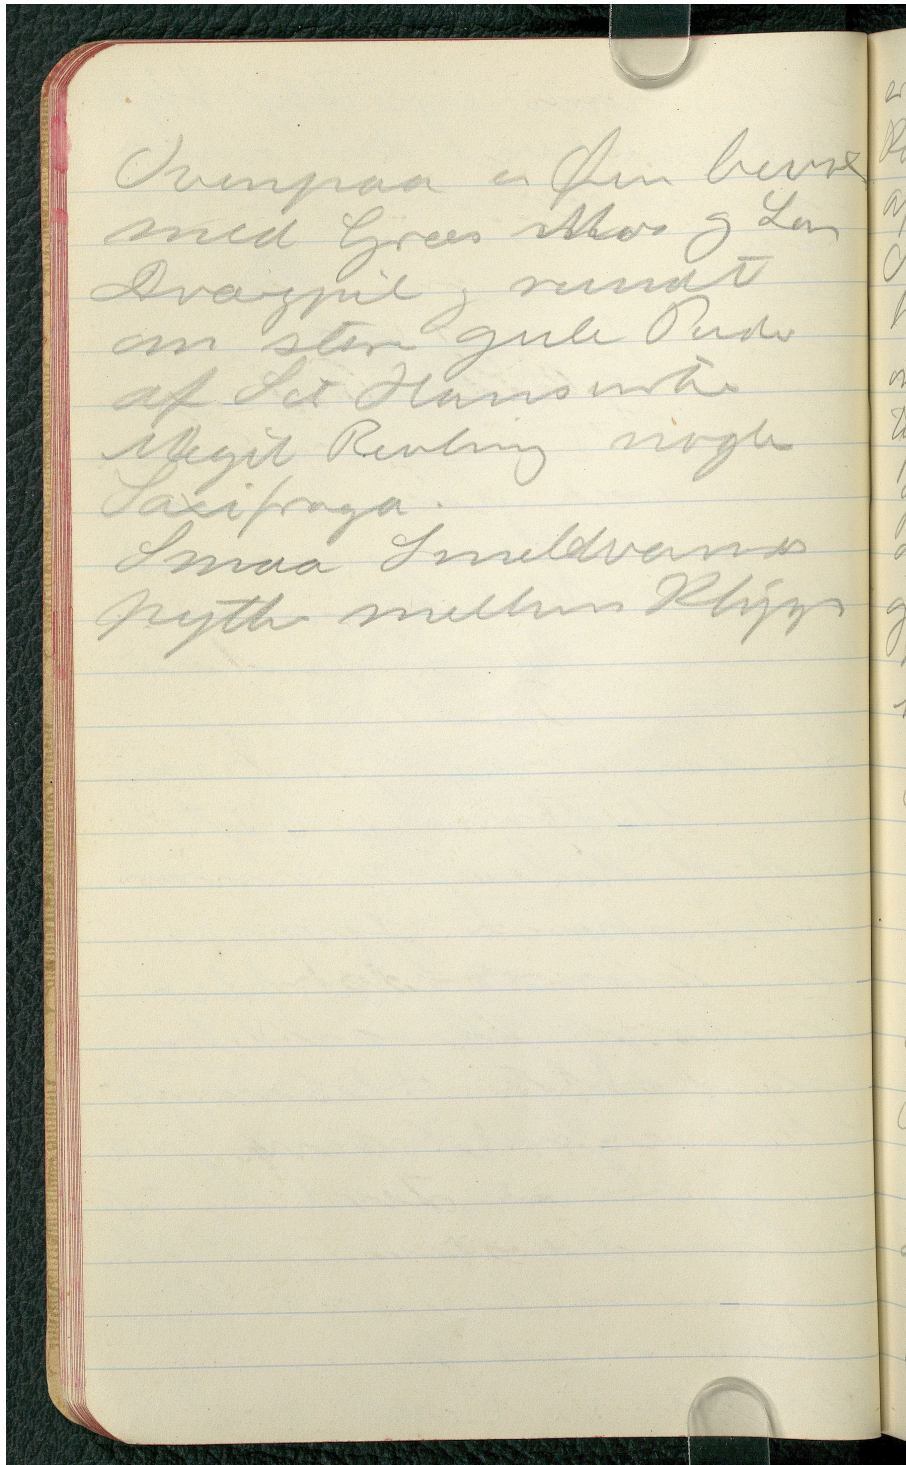 Ovenpaa er Øen bevox
med Græs Mos og Lav
Dværgpil og rundt
om store gule Puder
af Sct Hansurter
Meget Revling nogle
Saxifraga.
Smaa Smeldvands
pytter mellem Klipper